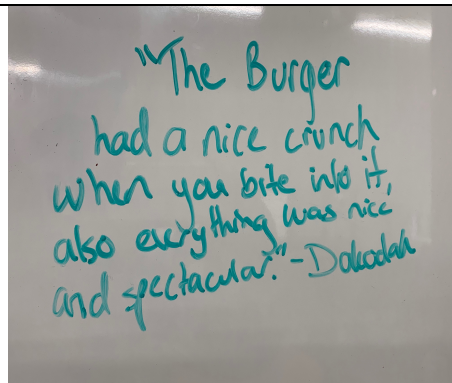 "The Burger
had a nice crunch
when you bite into it,
also everything was nice
and spectacular." - Dakodah